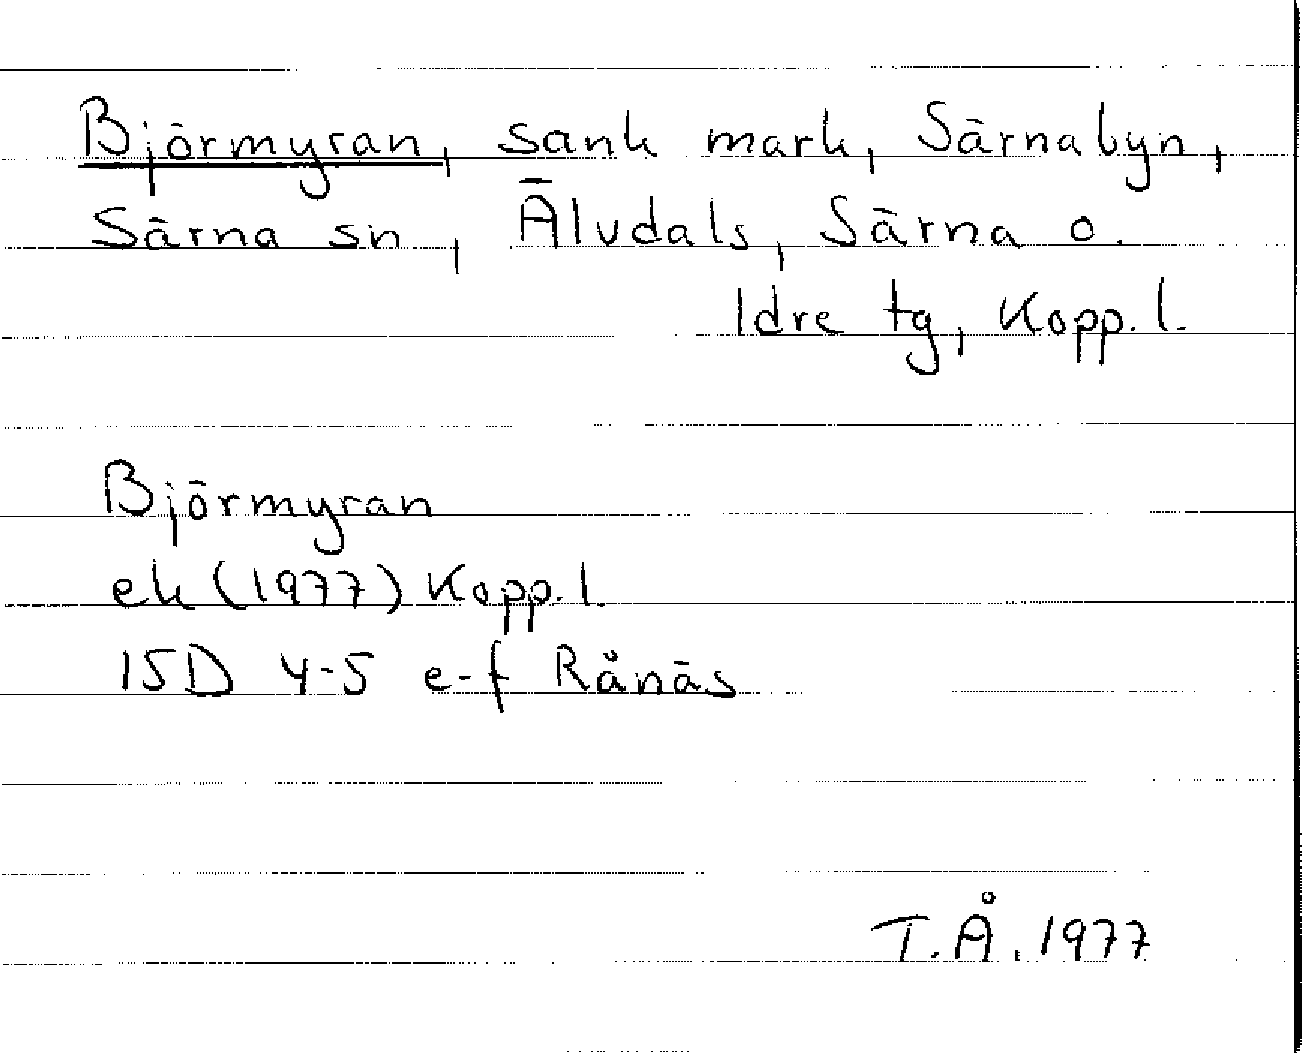 Björmyran, sank mark, Särnabyn,
Särna sn, Älvdals, Särna o.
Idre tg, Kopp. l.
Björmyran
ek (1977) Kopp. l.
15D 4-5 e-f Rånäs
T.Å. 1977